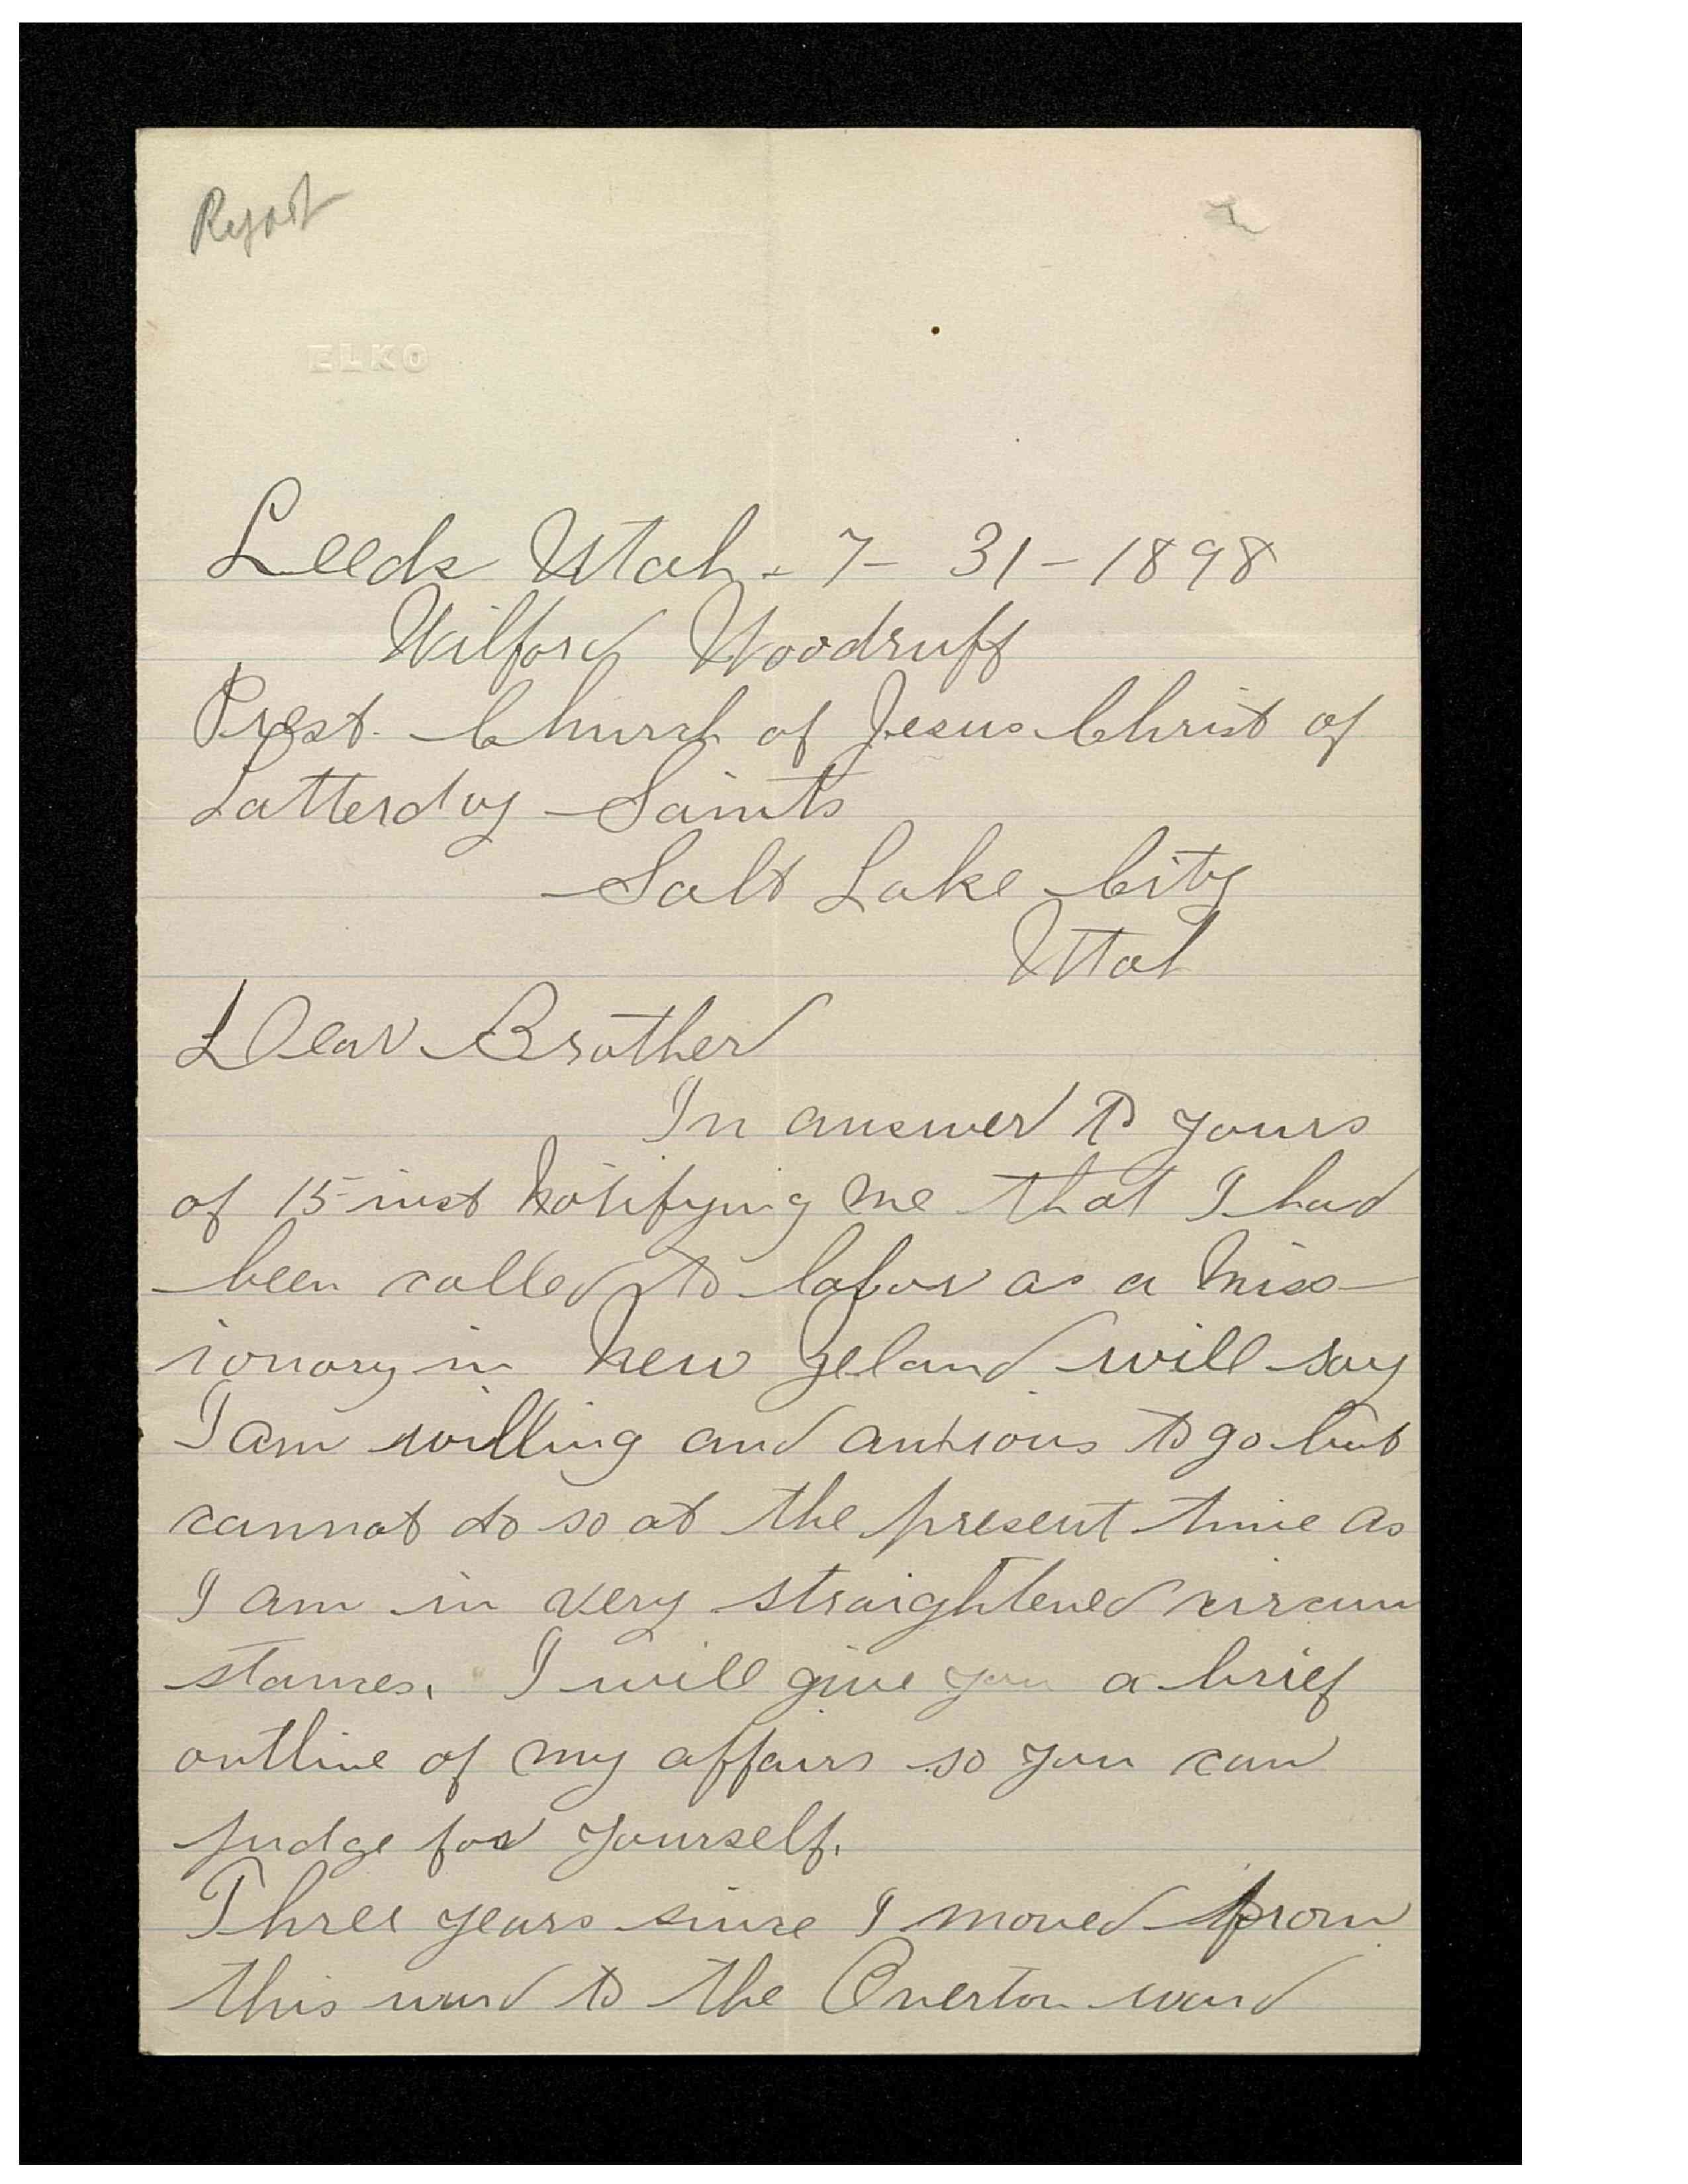 Report
ELKO
Leeds Utah - 7 - 31 - 1898
Wilford Woodruff
Prest. Church of Jesus Christ of
Latterday Saints
Salt Lake City
Utah
Dear Brother
In answer to yours
of 15 inst notifying me that I had
been called to labor as a miss-
ionary in New Zeland will say
I am willing and anxious to go but
cannot do so at the present time as
I am in very straightened circum
stances. I will give you a brief
outline of my affairs so you can
judge for yourself.
Three years since I moved from
this ward to the Overton ward